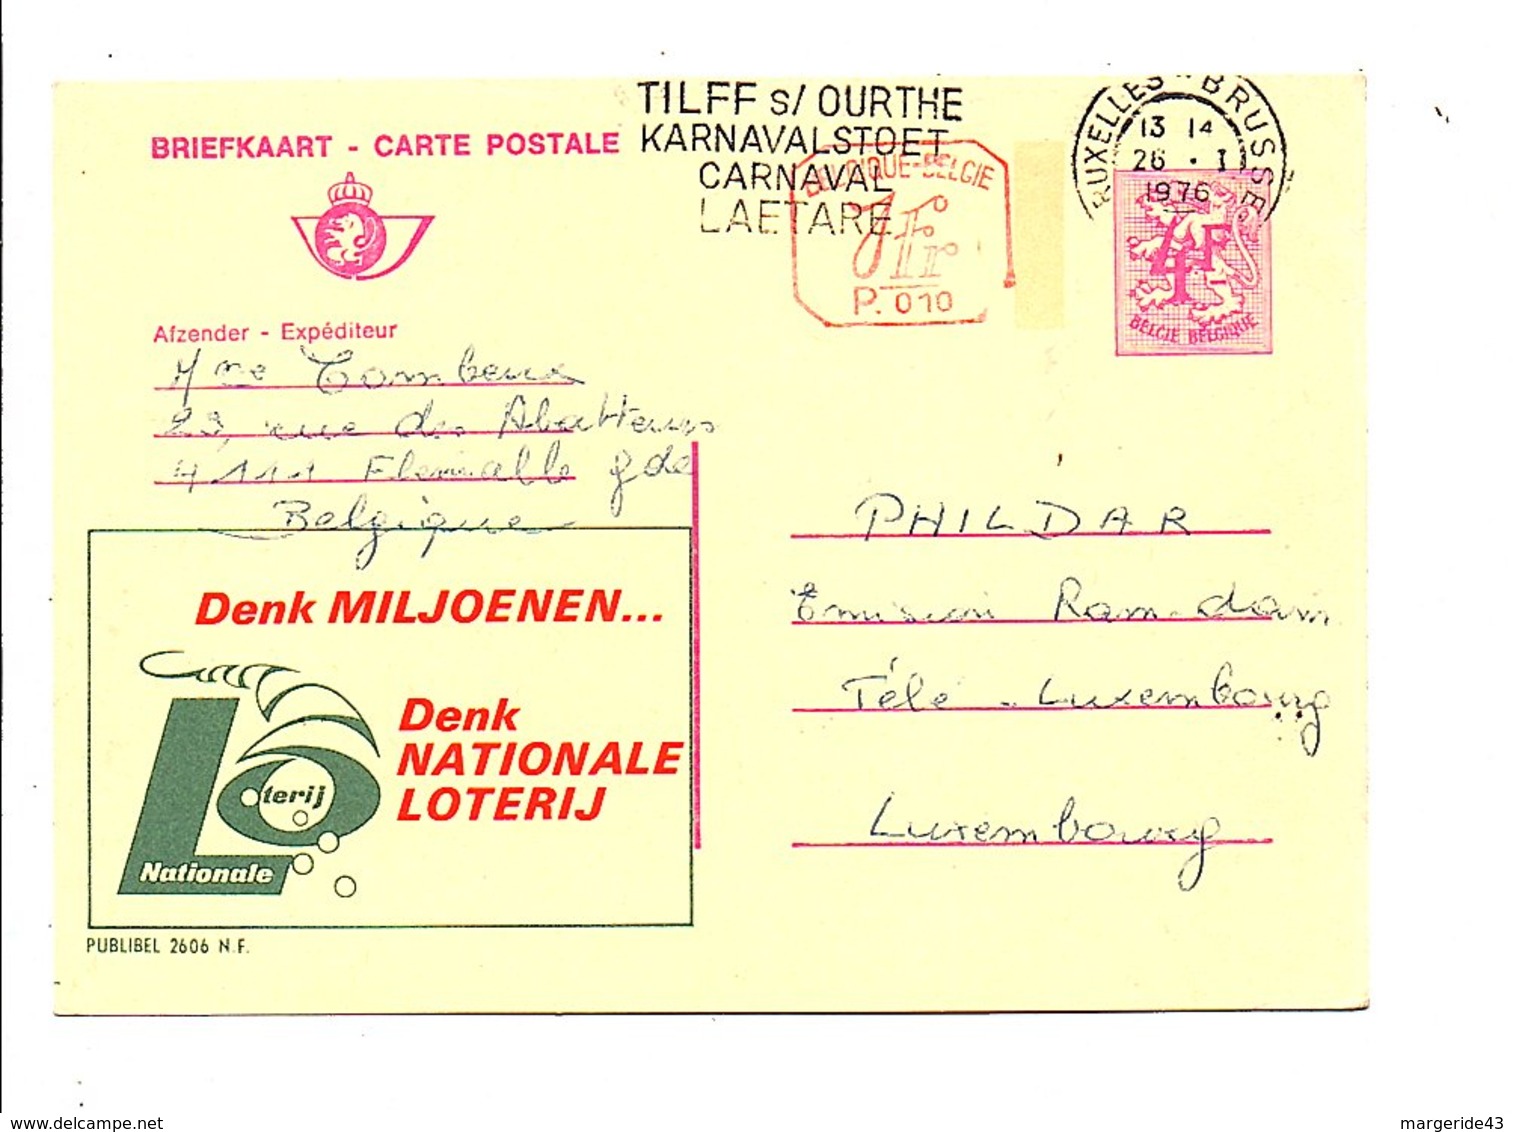 TILFF s/ OURTHE
KARNAVALSTOET
CARNAVAL
LAETARE
BRUXELLES - BRUSSE
13 14
26 · I
1976
BRIEFKAART - CARTE POSTALE
BELGIQUE-BELGIE
1Fr
P. 010
4F
BELGIË BELGIQUE
Afzender - Expéditeur
Mme
23, rue des Abatteurs
4111 Flemalle gde
Belgique
PHILDAR
Emission Ram-dam
Télé-Luxembourg
Luxembourg
Denk MILJOENEN...
Denk
NATIONALE
LOTERIJ
Loterij
Nationale
PUBLIBEL 2606 N.F.
delcampe.net
margeride43